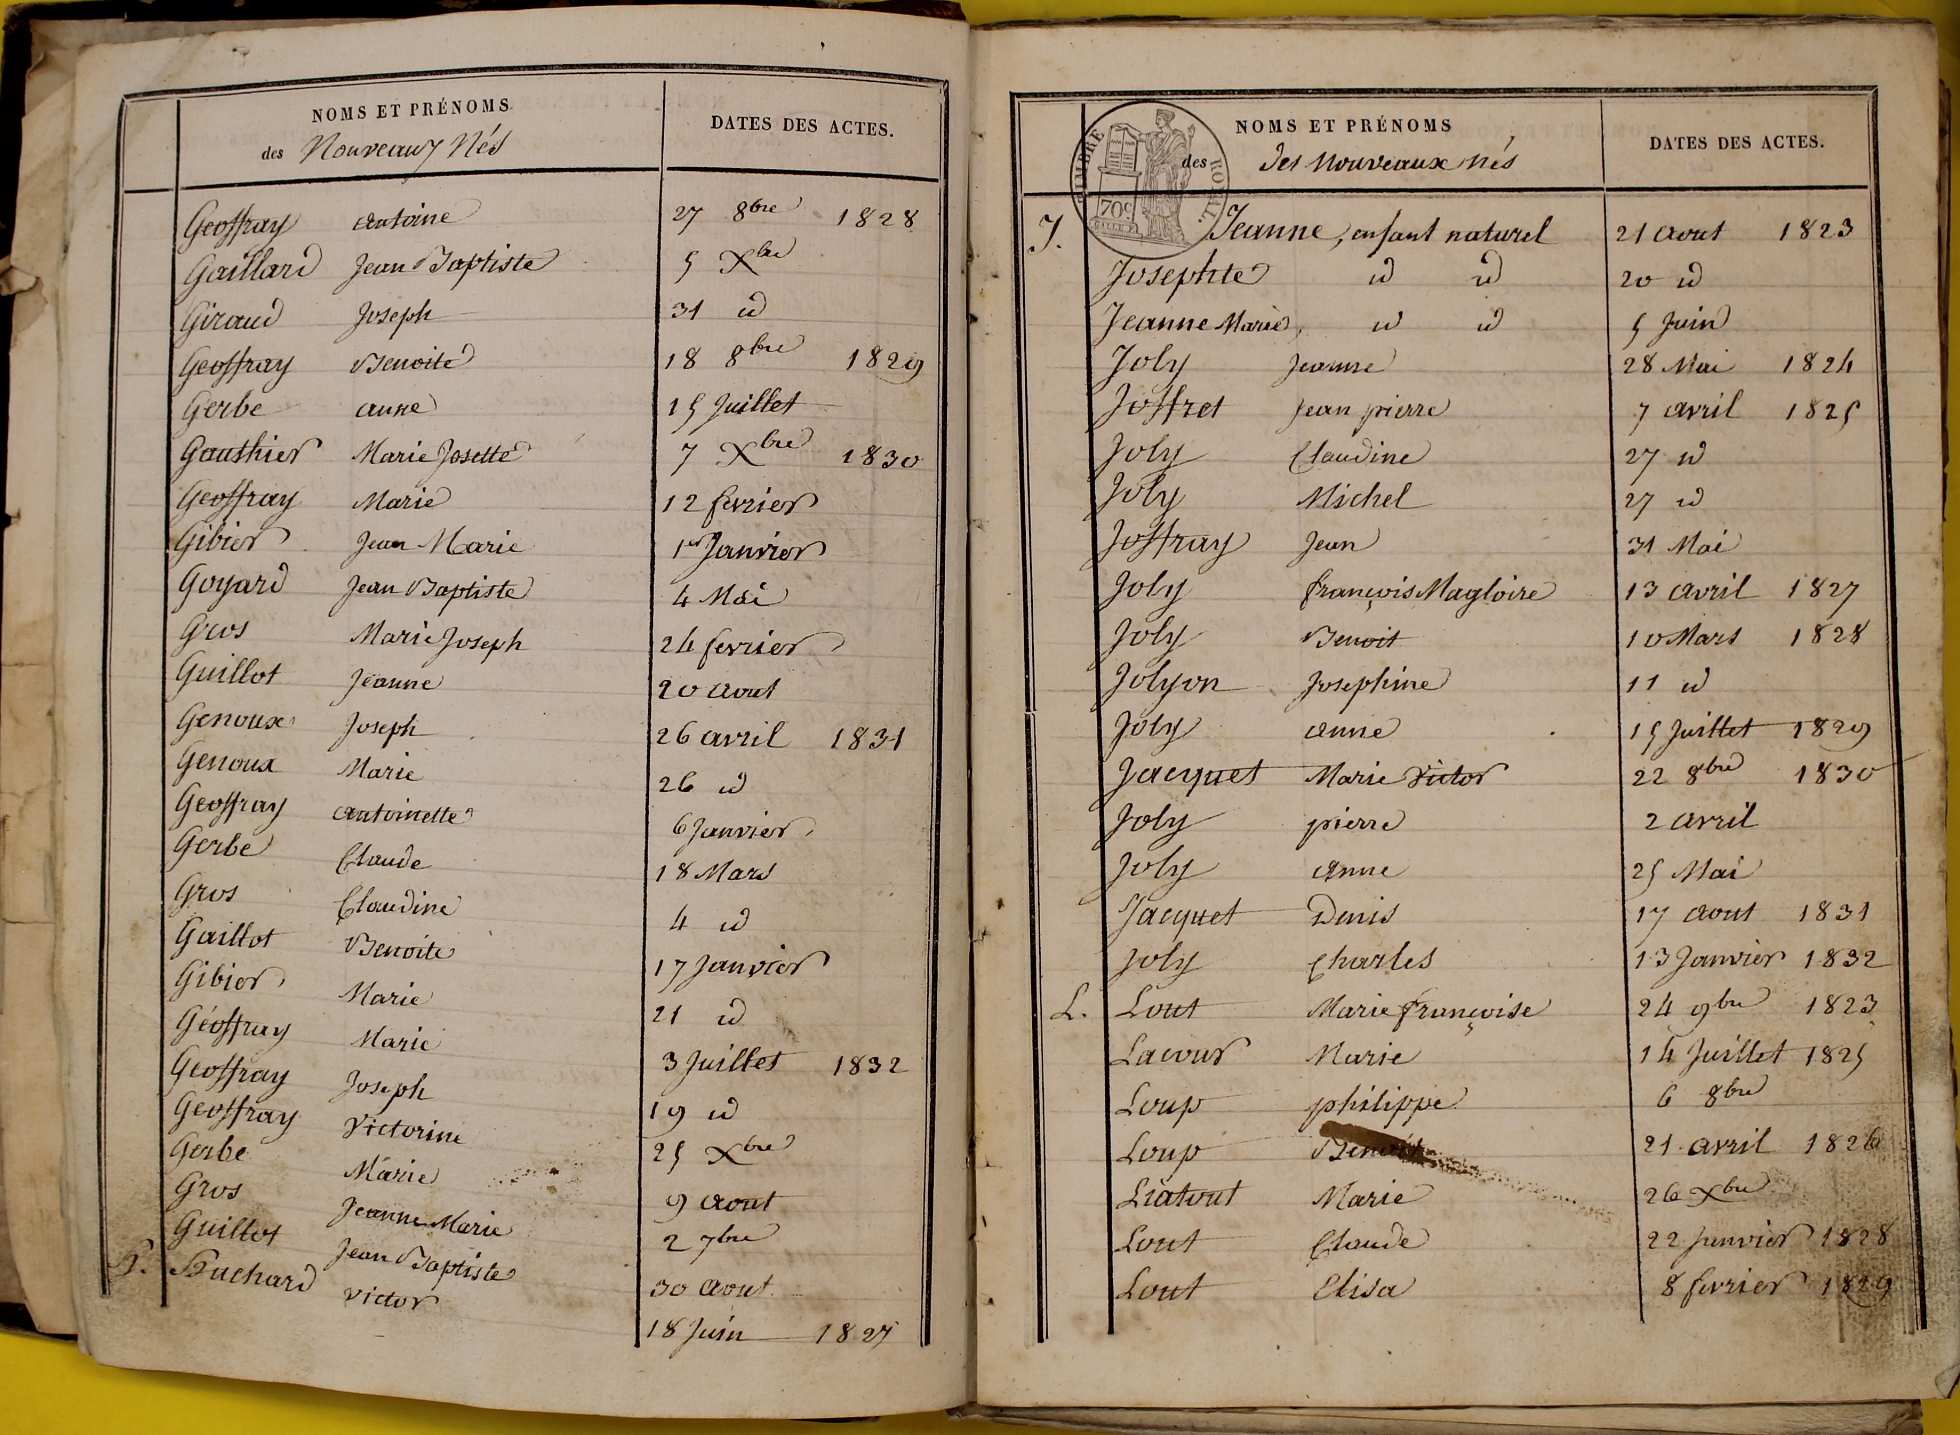 NOMS ET PRÉNOMS
des Nouveaux Nés
DATES DES ACTES.
Geoffray Antoine 27 8bre 1828
Gaillard Jean Baptiste 5 Xbre
Giraud Joseph 31 id
Geoffray Benoite 18 8bre 1829
Gerbe anne 15 Juillet
Gauthier Marie Josette 7 Xbre 1830
Geoffray Marie 12 fevrier
Gibier Jean Marie 1er Janvier
Goyard Jean Baptiste 4 Mai
Gros Marie Joseph 24 fevrier
Guillot Jeanne 20 aout
Genoux Joseph 26 avril 1831
Genoux Marie 26 id
Geoffray Antoinette 6 Janvier
Gerbe Claude 18 Mars
Gros Claudine 4 id
Gaillot Benoite 17 Janvier
Gibier Marie 21 id
Géoffray Marie 3 Juillet 1832
Geoffray Joseph 19 id
Geoffray Victorine 25 Xbre
Gerbe Marie 9 aout
Gros Jeanne Marie 2 7bre
Guillot Jean Baptiste 30 aout
Huchard Victor 18 Juin 1827
TIMBRE ROYAL
70c
NOMS ET PRÉNOMS
des des Nouveaux nés
DATES DES ACTES.
J. Jeanne, enfant naturel 21 aout 1823
Josephte id id 20 id
Jeanne Marie, id id 5 Juin
Joly Jeanne 28 Mai 1824
Joffret Jean pierre 7 avril 1825
Joly Claudine 27 id
Joly Michel 27 id
Joffray Jean 31 Mai
Joly françois Magloire 13 avril 1827
Joly Benoit 10 Mars 1828
Jolyon Josephine 11 id
Joly anne 15 Juillet 1829
Jacquet Marie Victor 22 8bre 1830
Joly pierre 2 avril
Joly Anne 25 Mai
Jacquet Denis 17 aout 1831
Joly Charles 13 Janvier 1832
L. Lout Marie françoise 24 9bre 1823
Lacour Marie 14 Juillet 1825
Loup philippe 6 8bre
Loup Benoit 21 avril 1826
Liatout Marie 26 Xbre
Lout Claude 22 Janvier 1828
Lout Elisa 8 fevrier 1829